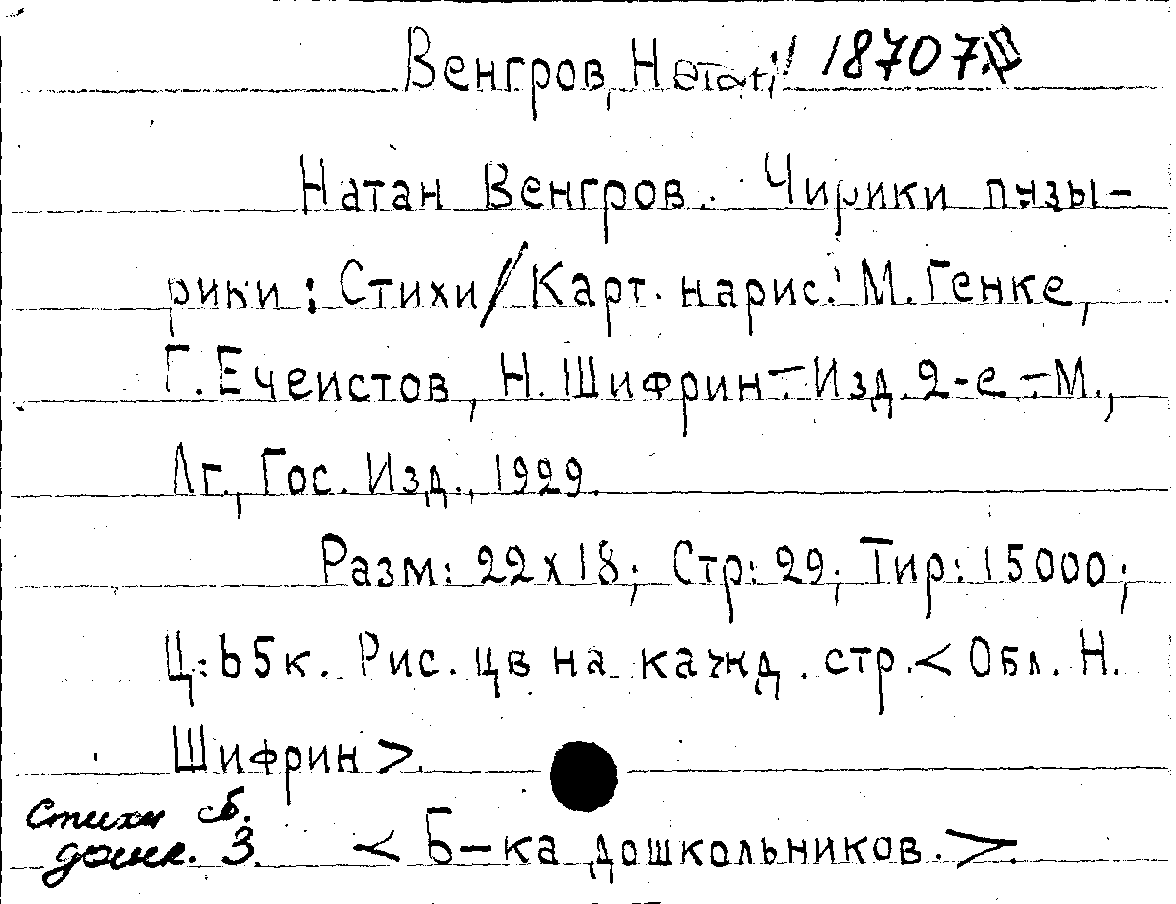 Венгров, Натан 18707
Натан Венгров. Чирики пузы-
рики : Стихи / Карт. нарис. М. Генке,
Г. Ечеистов, Н. Шифрин.- Изд. 2-е.- М.,
Лг., Гос. Изд., 1929.
Разм: 22х18; Стр: 29; Тир: 15000;
Ц: 65к. Рис. цв на кажд. стр. < Обл. Н.
Шифрин >.
Стихи сб.
дошк. 3. < Б-ка дошкольников. >.